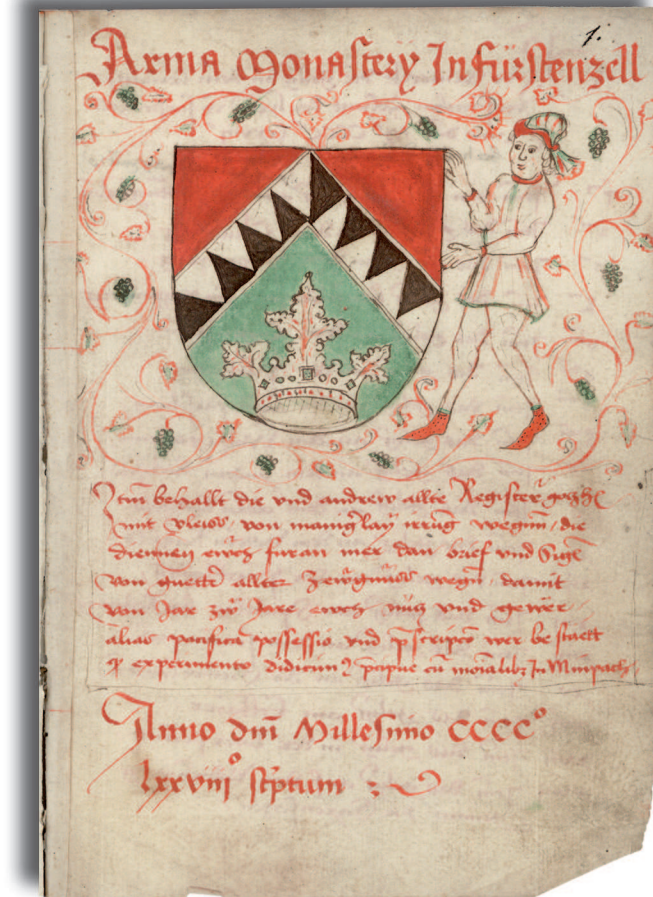 1.
Arma Monastery In fürstenzell
Itm̄ behallt die vnd andrew allte Register
mit vleiss von manig̃lay irrūg wegnn die
diennen ewch furan mer dan brief vnd Sigł
von guettr̄ allter Zewgnuss wegn̄ damit
von Jar zw̆ Jare ewch nucz vnd gewer
alias pacifica possessio vnd p̄scripcō wer bestaett
experimento didicim9 p̄cipue cū moīalibz In Minpach
Anno dnī Millesimo CCCC°
lxxviii° sc̄ptum